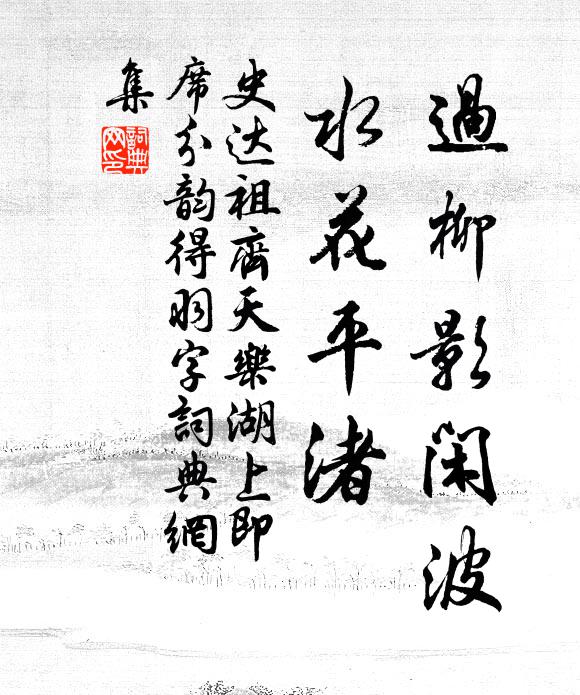 過柳影闲波
水花平渚
史达祖齊天樂湖上即
席分韵得羽字詞典網
集
詞典網印